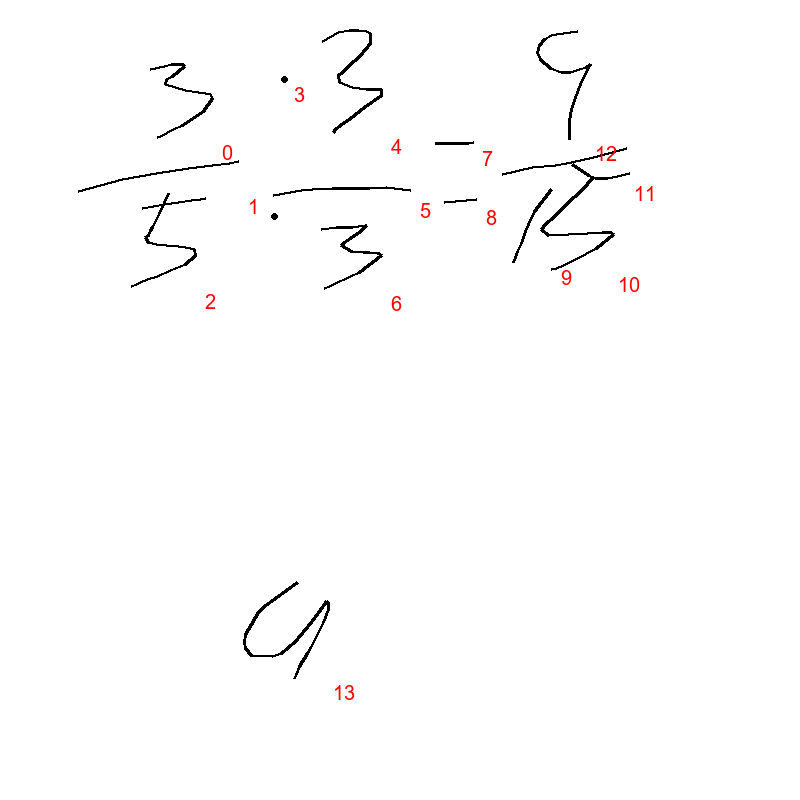 3 · 3 = 9
5 · 3 15
0 1 2 3 4 5 6 7 8 9 10 11 12
9
13